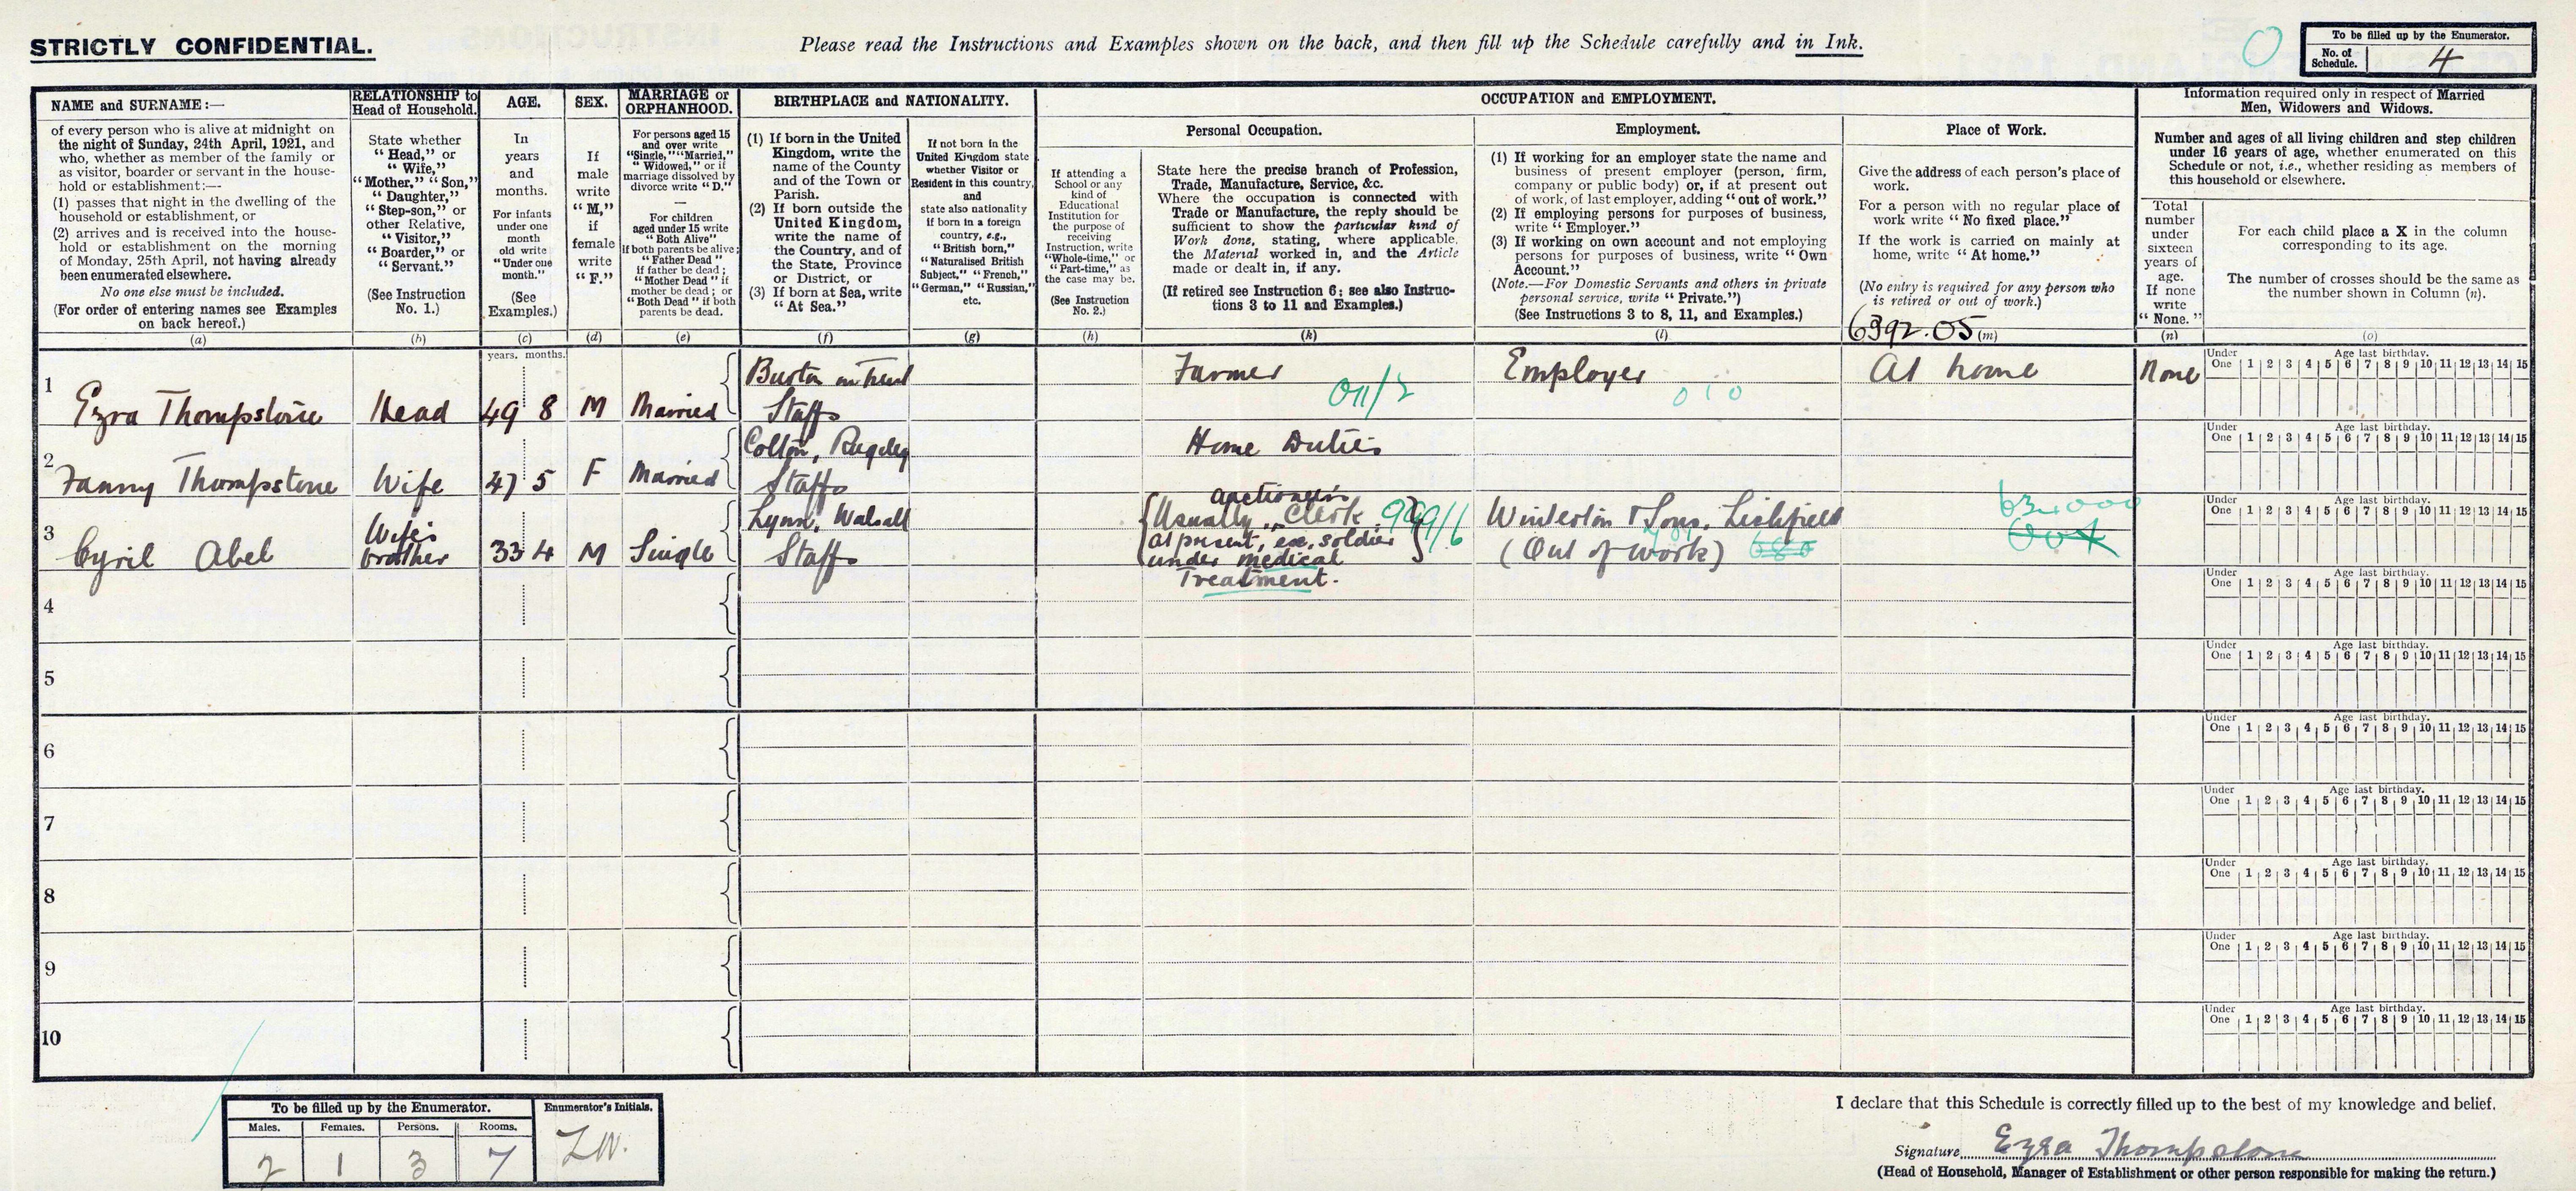 STRICTLY CONFIDENTIAL.
Please read the Instructions and Examples shown on the back, and then fill up the Schedule carefully and in Ink.
0
To be filled up by the Enumerator.
No. of Schedule. 4
NAME and SURNAME:—
of every person who is alive at midnight on
the night of Sunday, 24th April, 1921, and
who, whether as member of the family or
as visitor, boarder or servant in the house-
hold or establishment:—
(1) passes that night in the dwelling of the
household or establishment, or
(2) arrives and is received into the house-
hold or establishment on the morning
of Monday, 25th April, not having already
been enumerated elsewhere.
No one else must be included.
(For order of entering names see Examples
on back hereof.)
(a)
RELATIONSHIP to
Head of Household.
State whether
"Head," or
"Wife,"
"Mother," "Son,"
"Daughter,"
"Step-son," or
other Relative,
"Visitor,"
"Boarder," or
"Servant."
(See Instruction
No. 1.)
(b)
AGE.
In
years
and
months.
For infants
under one
month
old write
"Under one
month."
(See
Examples.)
(c)
SEX.
If
male
write
"M,"
if
female
write
"F."
(d)
MARRIAGE or
ORPHANHOOD.
For persons aged 15
and over write
"Single," "Married,"
"Widowed," or if
marriage dissolved by
divorce write "D."
For children
aged under 15 write
"Both Alive"
if both parents be alive;
"Father Dead"
if father be dead;
"Mother Dead" if
mother be dead; or
"Both Dead" if both
parents be dead.
(e)
BIRTHPLACE and NATIONALITY.
(1) If born in the United
Kingdom, write the
name of the County
and of the Town or
Parish.
(2) If born outside the
United Kingdom,
write the name of
the Country, and of
the State, Province
or District, or
(3) If born at Sea, write
"At Sea."
(f)
If not born in the
United Kingdom state
whether Visitor or
Resident in this country,
and
state also nationality
if born in a foreign
country, e.g.,
"British born,"
"Naturalised British
Subject," "French,"
"German," "Russian,"
etc.
(g)
OCCUPATION and EMPLOYMENT.
If attending a
School or any
kind of
Educational
Institution for
the purpose of
receiving
Instruction, write
"Whole-time," or
"Part-time," as
the case may be.
(See Instruction
No. 2.)
(h)
Personal Occupation.
State here the precise branch of Profession,
Trade, Manufacture, Service, &c.
Where the occupation is connected with
Trade or Manufacture, the reply should be
sufficient to show the particular kind of
Work done, stating, where applicable,
the Material worked in, and the Article
made or dealt in, if any.
(If retired see Instruction 6; see also Instruc-
tions 3 to 11 and Examples.)
(k)
Employment.
(1) If working for an employer state the name and
business of present employer (person, firm,
company or public body) or, if at present out
of work, of last employer, adding "out of work."
(2) If employing persons for purposes of business,
write "Employer."
(3) If working on own account and not employing
persons for purposes of business, write "Own
Account."
(Note.—For Domestic Servants and others in private
personal service, write "Private.")
(See Instructions 3 to 8, 11, and Examples.)
(l)
Place of Work.
Give the address of each person's place of
work.
For a person with no regular place of
work write "No fixed place."
If the work is carried on mainly at
home, write "At home."
(No entry is required for any person who
is retired or out of work.)
6392.05 (m)
Information required only in respect of Married
Men, Widowers and Widows.
Number and ages of all living children and step children
under 16 years of age, whether enumerated on this
Schedule or not, i.e., whether residing as members of
this household or elsewhere.
Total
number
under
sixteen
years of
age.
If none
write
"None."
(n)
For each child place a X in the column
corresponding to its age.
The number of crosses should be the same as
the number shown in Column (n).
(o)
years. months.
1 Ezra Thompstone Head 49 8 M Married Burton on Trent
Staffs Farmer 011/2 Employer 010 At home None
Under One Age last birthday. 1 2 3 4 5 6 7 8 9 10 11 12 13 14 15
2 Fanny Thompstone Wife 47 5 F Married Colton, Rugeley
Staffs Home Duties
Under One Age last birthday. 1 2 3 4 5 6 7 8 9 10 11 12 13 14 15
3 Cyril Abel Wife's
brother 33 4 M Single Lynn, Walsall
Staffs
auctioneer's
Usually " Clerk
at present, ex. soldier
under medical
Treatment.
999/6
Winterton & Sons, Lichfield
(Out of work)
Under One Age last birthday. 1 2 3 4 5 6 7 8 9 10 11 12 13 14 15
4
Under One Age last birthday. 1 2 3 4 5 6 7 8 9 10 11 12 13 14 15
5
Under One Age last birthday. 1 2 3 4 5 6 7 8 9 10 11 12 13 14 15
6
Under One Age last birthday. 1 2 3 4 5 6 7 8 9 10 11 12 13 14 15
7
Under One Age last birthday. 1 2 3 4 5 6 7 8 9 10 11 12 13 14 15
8
Under One Age last birthday. 1 2 3 4 5 6 7 8 9 10 11 12 13 14 15
9
Under One Age last birthday. 1 2 3 4 5 6 7 8 9 10 11 12 13 14 15
10
Under One Age last birthday. 1 2 3 4 5 6 7 8 9 10 11 12 13 14 15
To be filled up by the Enumerator.
Males. Females. Persons. Rooms.
2 1 3 7
Enumerator's Initials.
I declare that this Schedule is correctly filled up to the best of my knowledge and belief.
Signature Ezra Thompstone
(Head of Household, Manager of Establishment or other person responsible for making the return.)